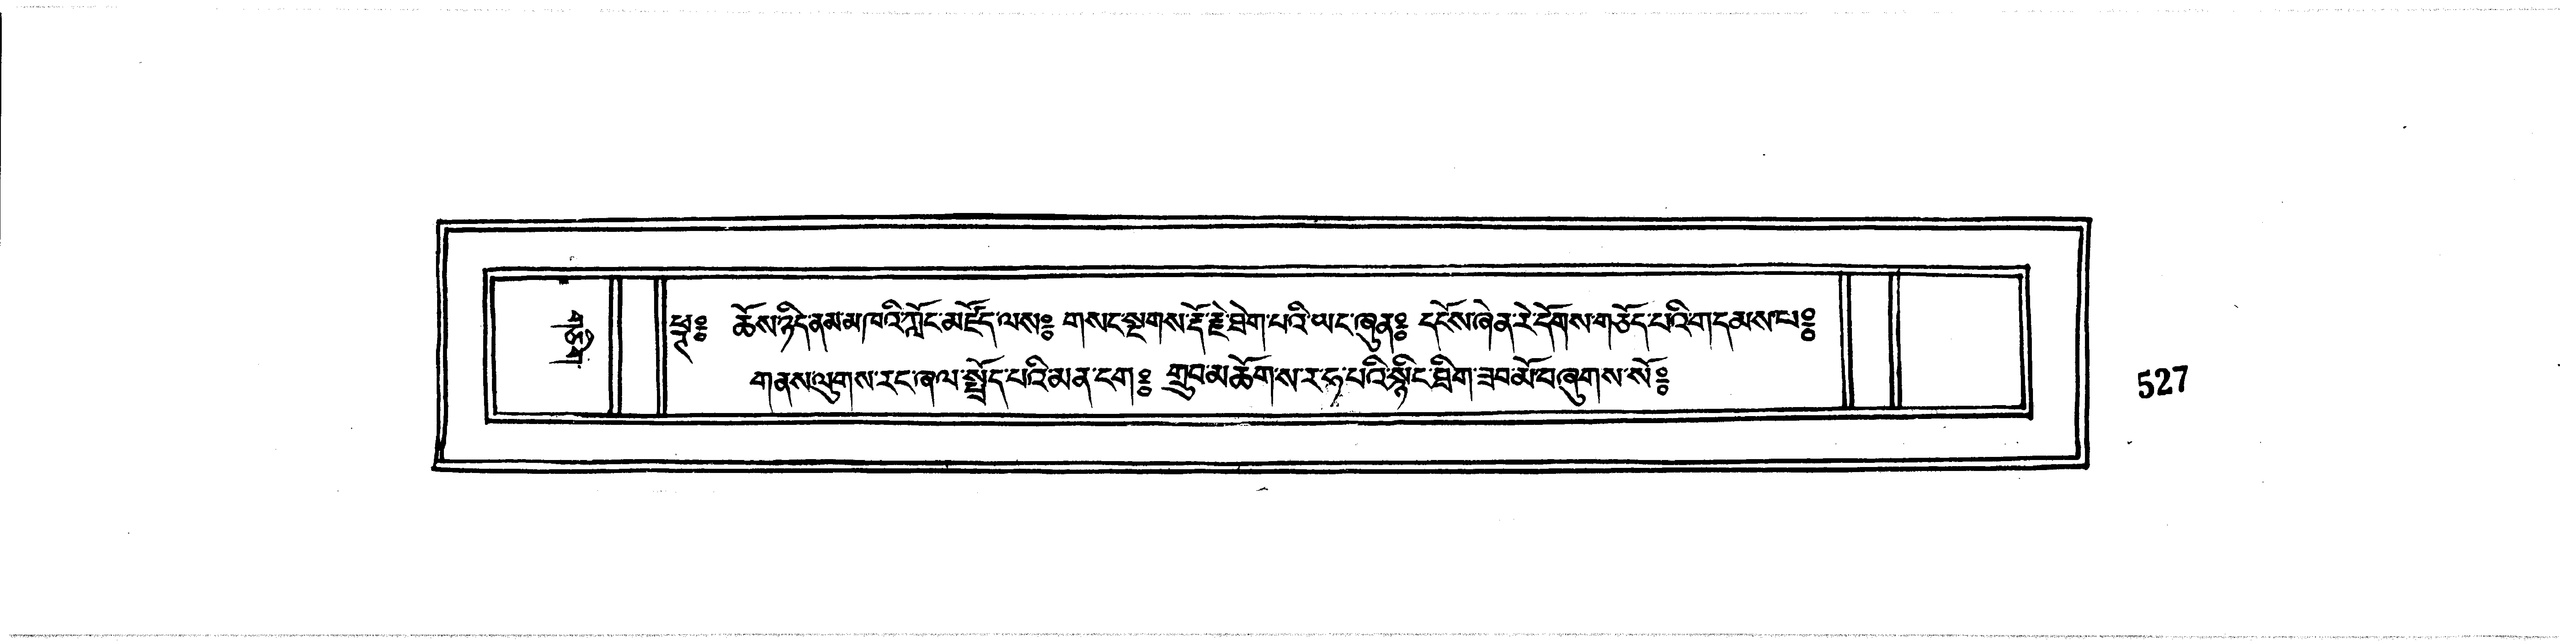 ཕྱྭ༔ ཆོས་ཉིད་ནམ་མཁའི་ཀློང་མཛོད་ལས༔ གསང་སྔགས་རྡོ་རྗེ་ཐེག་པའི་ཡང་ཞུན༔ དངོས་ཞེན་རེ་དོགས་གཅོད་པའི་གདམས་པ༔
གནས་ལུགས་རང་ཞལ་སྤྲོད་པའི་མན་ངག༔ གྲུབ་མཆོག་ས་ར་ཧ་པའི་སྙིང་ཐིག་ཟབ་མོ་བཞུགས་སོ༔
527